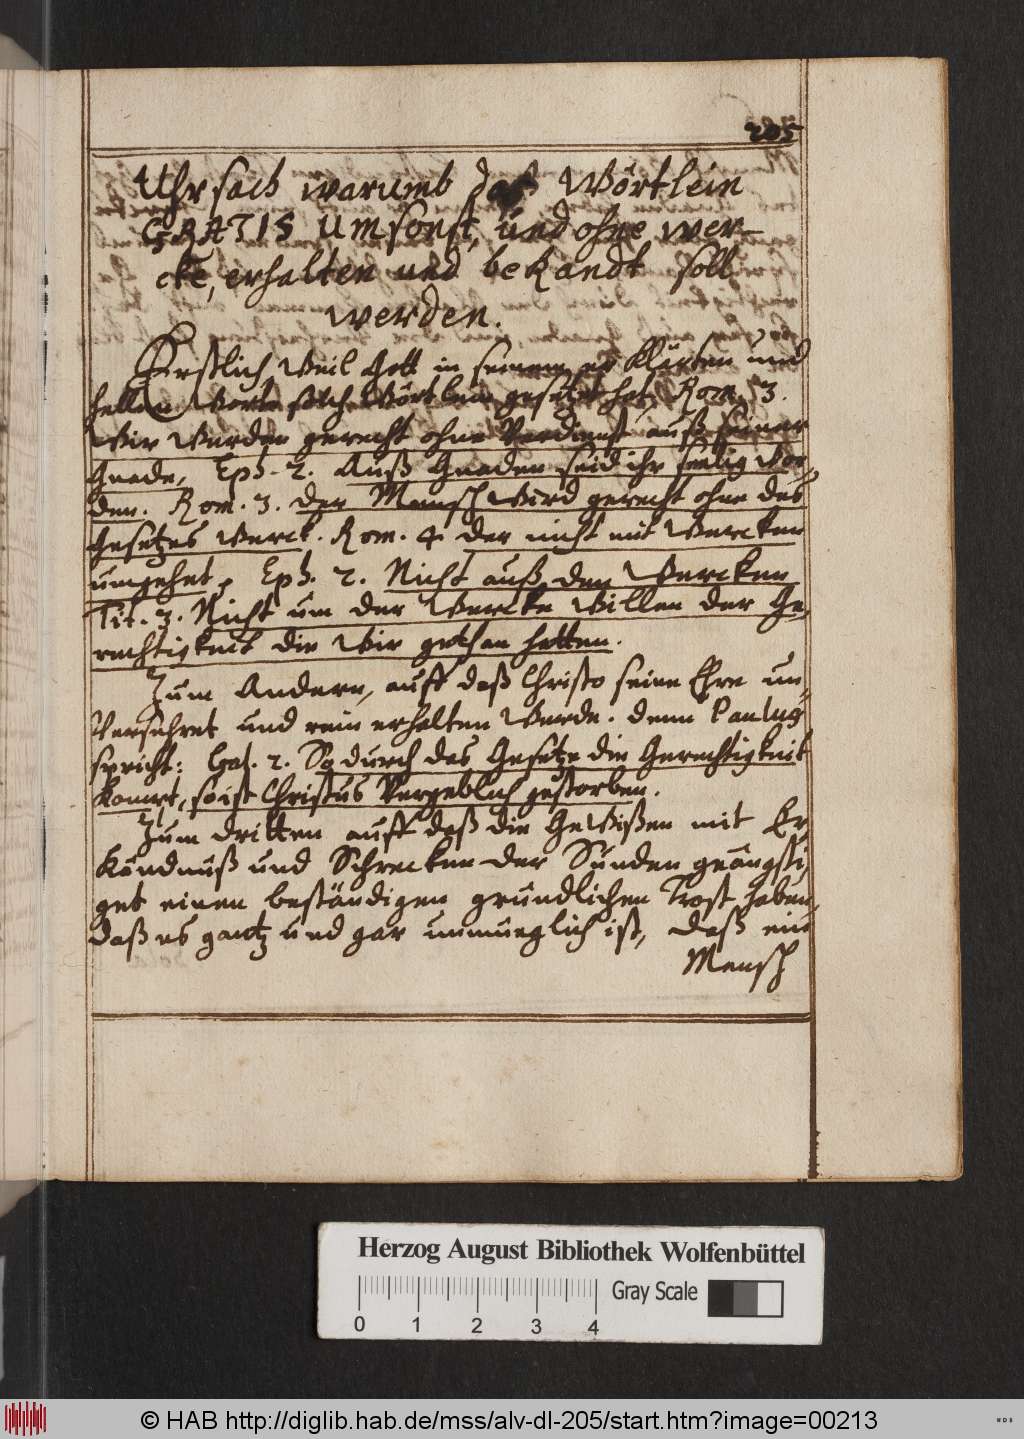 205
Uhrsach warumb daß Wörtlein
GRATIS Umsonst, und ohne wer-
cke, erhalten und bekandt soll
werden.
Erstlich Weil Gott in seinem er klärten und
hellen Worte solch Wörtlein gesetzet hat, Rom. 3.
Wir Werden gerecht ohne Verdienst auß seiner
Gnade, Eph. 2. Auß Gnaden seid ihr seelig wor,
den. Rom. 3. der Mensch Wird gerecht ohne des
Gesetzes Werck. Rom. 4. der nicht mit Wercken
umgehet, Eph. 2. Nicht auß den Wercken
Tit. 3. Nicht um der Wercke Willen der Ge,
rechtigkeit die Wir gethan hetten.
Zum Andern, auff daß Christo seine Ehre un,
Versehret und rein erhalten Werde. denn Paulus
spricht: Gal. 2. So durch das Gesetze die Gerechtigkeit
kommt, so ist Christus Vergeblich gestorben.
Zum dritten auff daß die Gewißen mit Er,
Köndnüß und Schrecken der Sünden geängsti,
get einen beständigen gründlichen Trost haben,
daß es gantz und gar unmueglich ist, daß ein
Mensch
Herzog August Bibliothek Wolfenbüttel
Gray Scale
0 1 2 3 4
© HAB http://diglib.hab.de/mss/alv-dl-205/start.htm?image=00213